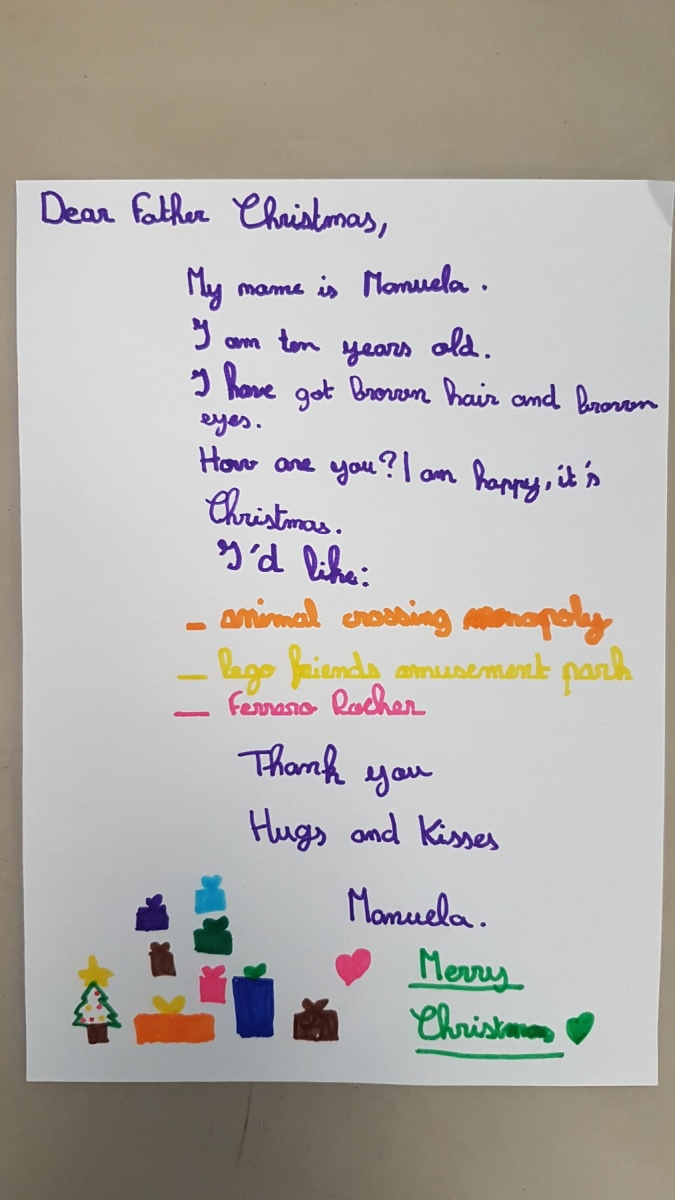 Dear Father Christmas,
My name is Manuela.
I am ten years old.
I have got brown hair and brown
eyes.
How are you? I am happy, it's
Christmas.
I'd like:
_ animal crossing monopoly
_ lego friends amusement park
_ Ferrero Rocher
Thank you
Hugs and Kisses
Manuela.
Merry
Christmas